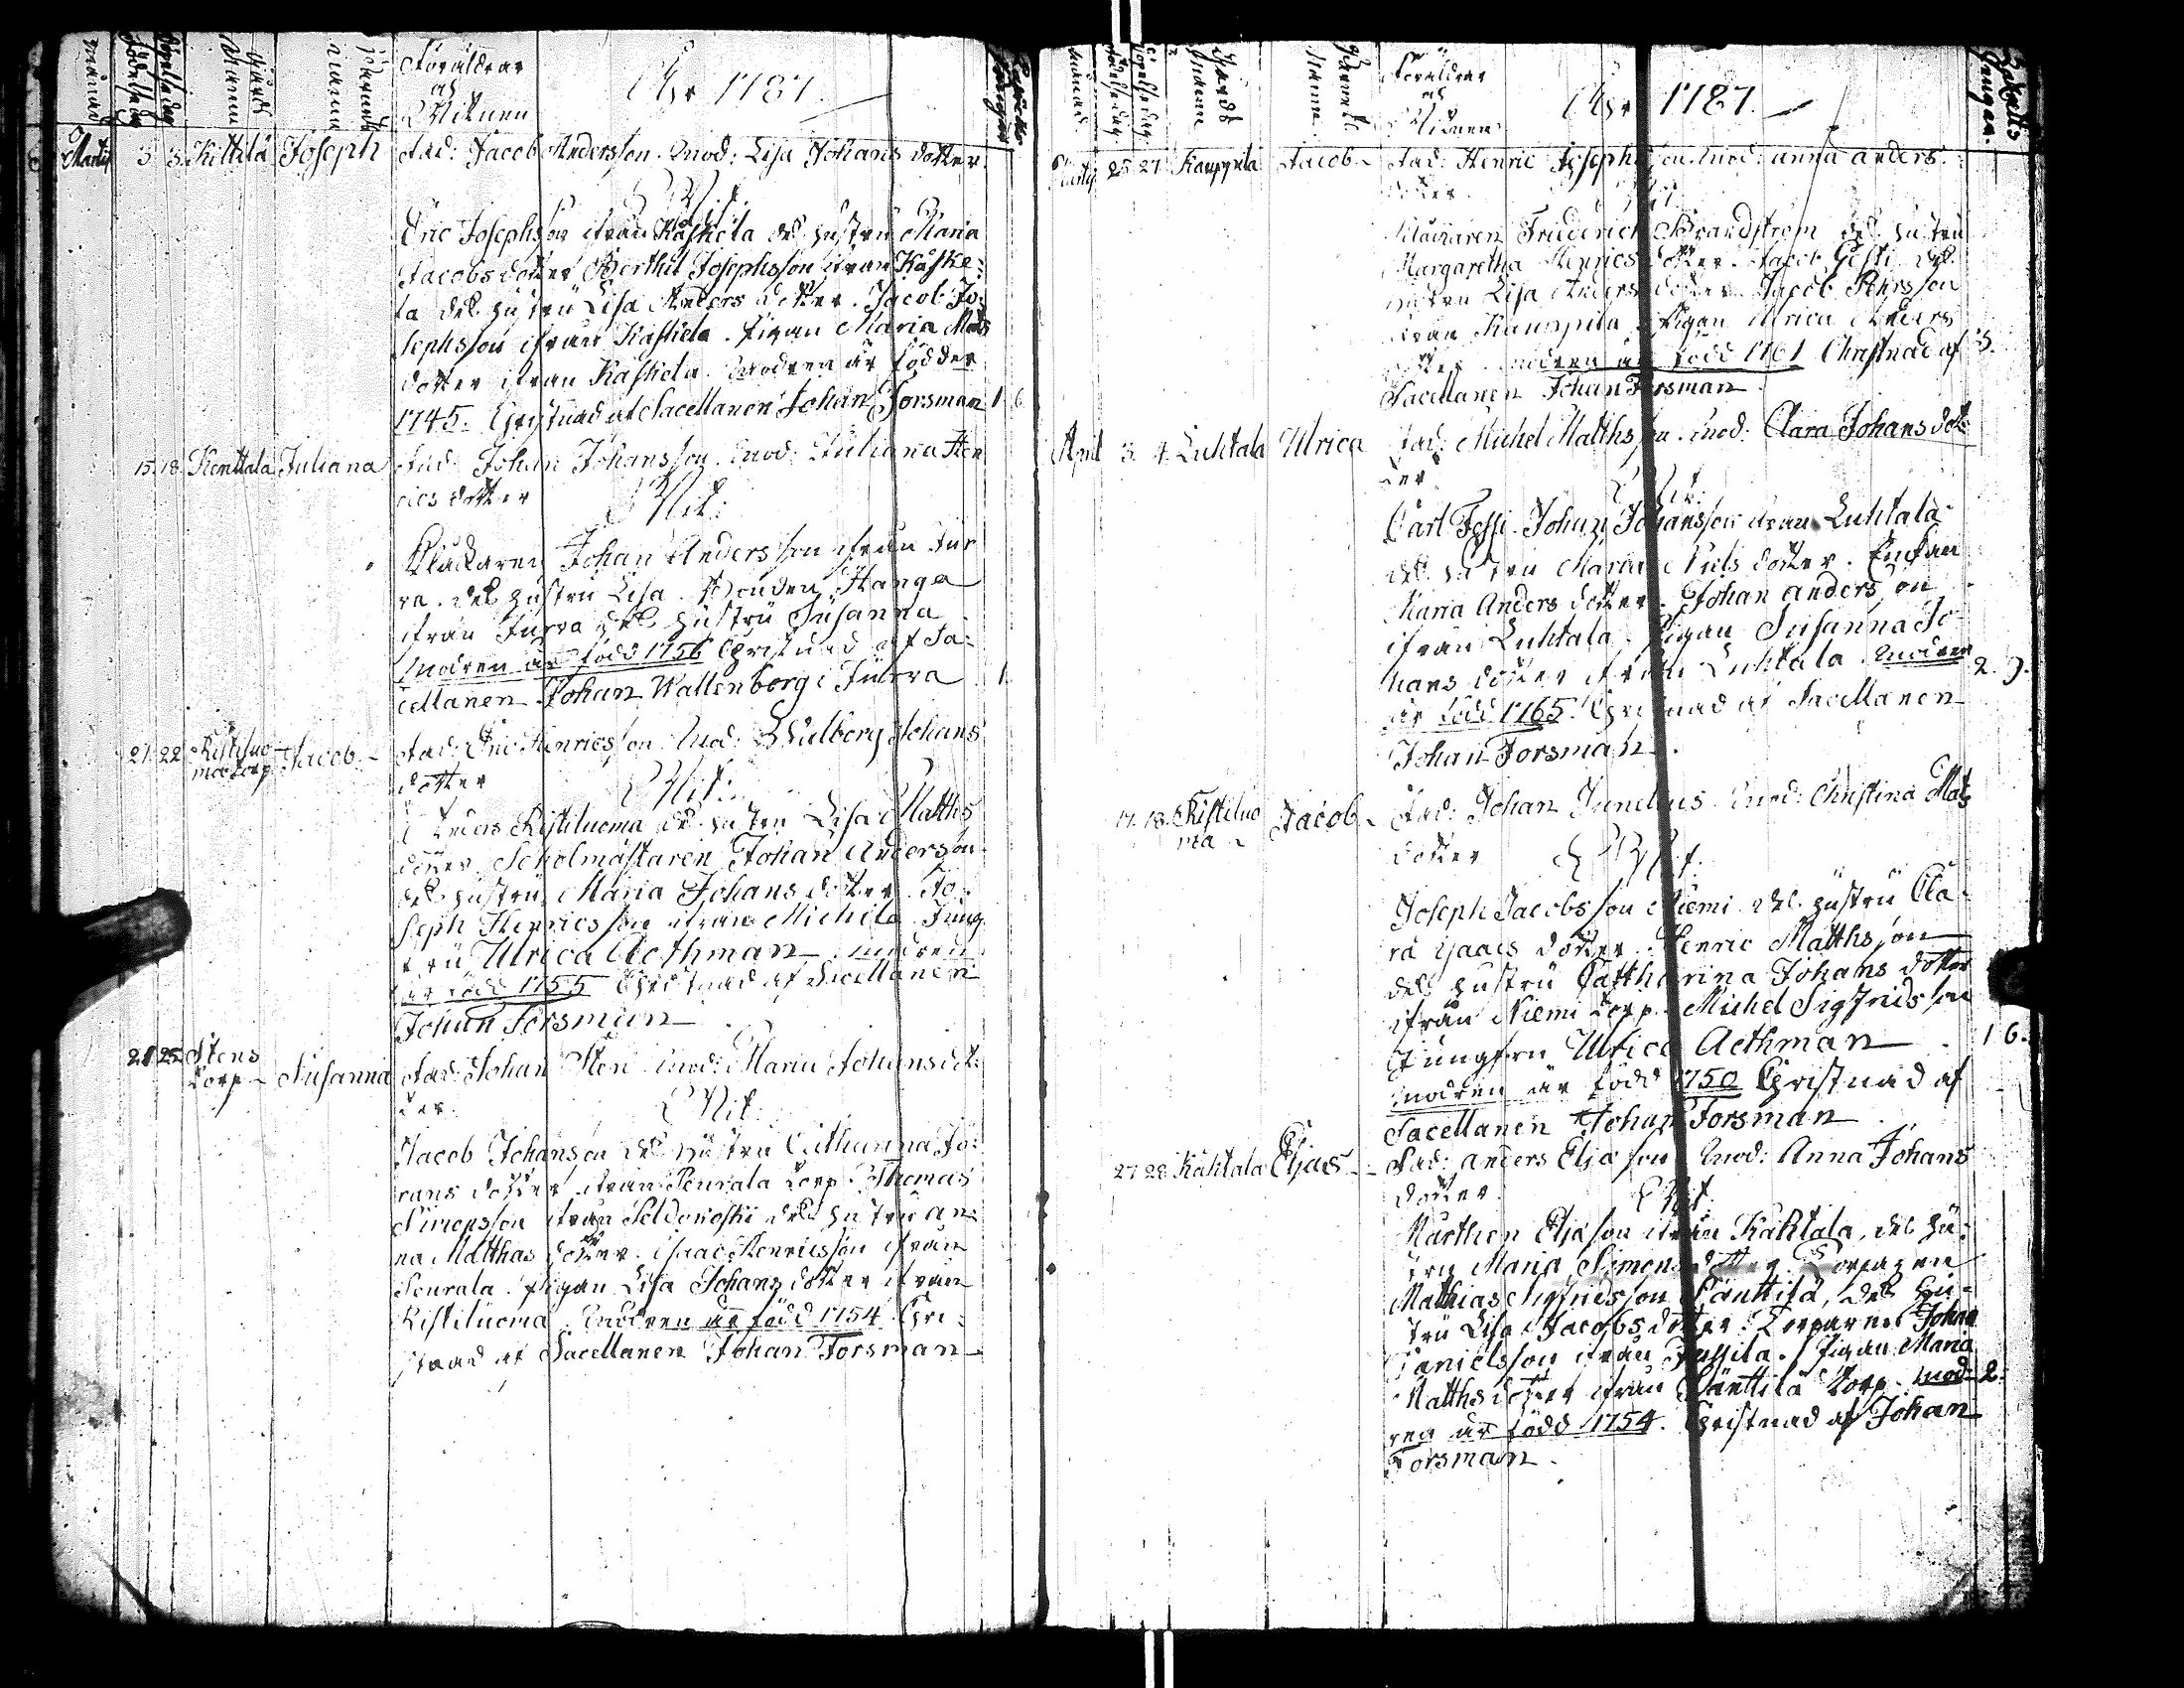 Månad
Födelse dag
Döpelse dag
Gårds
Namn
Barnets
namn
Föräldrar
och
Witnen
Åhr 1787.
Martii 3. 3. Kittilä Joseph Fad: Jacob Andersson. Mod: Lisa Johans dotter.
Wit:
Eric Josephsson ifrån Kaskela des hustru Maria
Jacobs dotter Berthil Josephsson ifrån Kaske-
la des hustru Lisa Anders dotter. Jacob Jo-
sephsson ifrån Kaskela. Pigan Maria Mats
dotter ifrån Kaskela. Modren är födder
1745. Christnad af Sacellanen Johan Forsman 1 6
15. 18. Kenttala Juliana Fad: Johan Johansson. Mod: Juliana Hen
rics dotter
Wit:
Klåckaren Johan Andersson ifrån Jur
va. des hustru Lisa. Bonden Hanga
ifrån Jurva des hustru Susanna
Modren är född 1756 Christnad af Sa-
cellanen Johan Wallenberg i Jurva 1.
21. 22. Ristiluo-
ma torp Jacob. Fad: Eric Henricsson. Mod: Wulborg Johans
dotter
Wit:
Anders Ristiluoma des hustru Lisa Matths
dotter Scholmästaren Johan Andersson
des hustru Maria Johans dotter. Jo-
seph Henricsson ifrån Michila Jung
fru Ulrica Aethman modren
är född 1755 Christnad af Sacellanen
Johan Forsman
25. Stens
torp Susanna Fad: Johan Sten Mod: Maria Johans dot-
ter.
Wit:
Jacob Johansson des hustru Catharina Jo-
hans dotter ifrån Peurala torp. Thomas
Simonsson ifrån des hustru An-
na Matthas dotter. Isaac Henricsson ifrån
Peurala. Pigan Lisa Johans dotter ifrån
Ristiluoma. Modren är född 1754 Chri-
stnad af Sacellanen Johan Forsman
Månad.
Födelse dag
Döpelse dag.
Gårds
Namn
Barnets
Namn.
Föräldrar
och
Witnen
Åhr 1787.
Martii 25 27 Kauppila Jacob Fad: Henric Josephsson. Mod: Anna Anders
dotter. Wit:
Klåckaren Friderich Brandstrom des hustru
Margaretha Henrics dotter. Jacob des
hustru Lisa Anders dotter. Jacob Pehrsson
ifrån Kauppila. Pigan Ulrica Anders
dotter modren är född 1761 Christnad af 3.
Sacellanen Johan Forsman
April 3. 4. Luhtala Ulrica Fad: Michel Matthsson. Mod: Clara Johans dot-
ter.
Wit:
Carl Johan Johansson ifrån Luhtala
des hustru Maria Niels dotter. Enkan
Maria Anders dotter. Johan Andersson
ifrån Luhtala. Pigan Susanna Jo-
hans dotter ifrån Luhtala. Modren 2. 9.
är född 1765. Christnad af Sacellanen
Johan Forsman.
17. 18. Ristiluo
ma Jacob Fad: Johan Junelius Mod: Christina Mats
dotter Wit:
Joseph Jacobsson Niemi des hustru Cla-
ra Isaacs dotter. Henric Matthsson
des hustru Catharina Johans dotter
ifrån Niemi torp. Michel Sigfridsson
Jungfru Ulrica Aethman 1 6.
modren är född 1750 Christnad af
Sacellanen Johan Forsman
27 28. Kahtala Eljas Fad: Anders Eljasson Mod: Anna Johans
dotter. Wit:
Marthen Eljasson ifrån Kahtala, des hu-
stru Maria Simons dotter. Torparen
Mathias Sigfridsson Pänttilä, des hu-
stru Lisa Jacobs dotter. Torparen Johan
Danielsson ifrån Pigan Maria
Matths dotter ifrån Pänttilä torp. Mod- 2.
ren är född 1754. Christnad af Johan
Forsman.